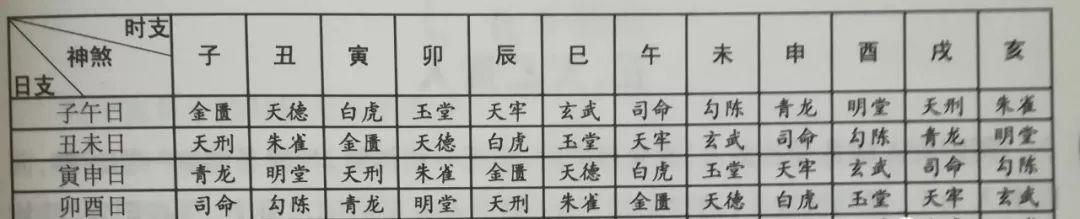 时支
神煞
日支
子 丑 寅 卯 辰 巳 午 未 申 酉 戌 亥
子午日 金匮 天德 白虎 玉堂 天牢 玄武 司命 勾陈 青龙 明堂 天刑 朱雀
丑未日 天刑 朱雀 金匮 天德 白虎 玉堂 天牢 玄武 司命 勾陈 青龙 明堂
寅申日 青龙 明堂 天刑 朱雀 金匮 天德 白虎 玉堂 天牢 玄武 司命 勾陈
卯酉日 司命 勾陈 青龙 明堂 天刑 朱雀 金匮 天德 白虎 玉堂 天牢 玄武